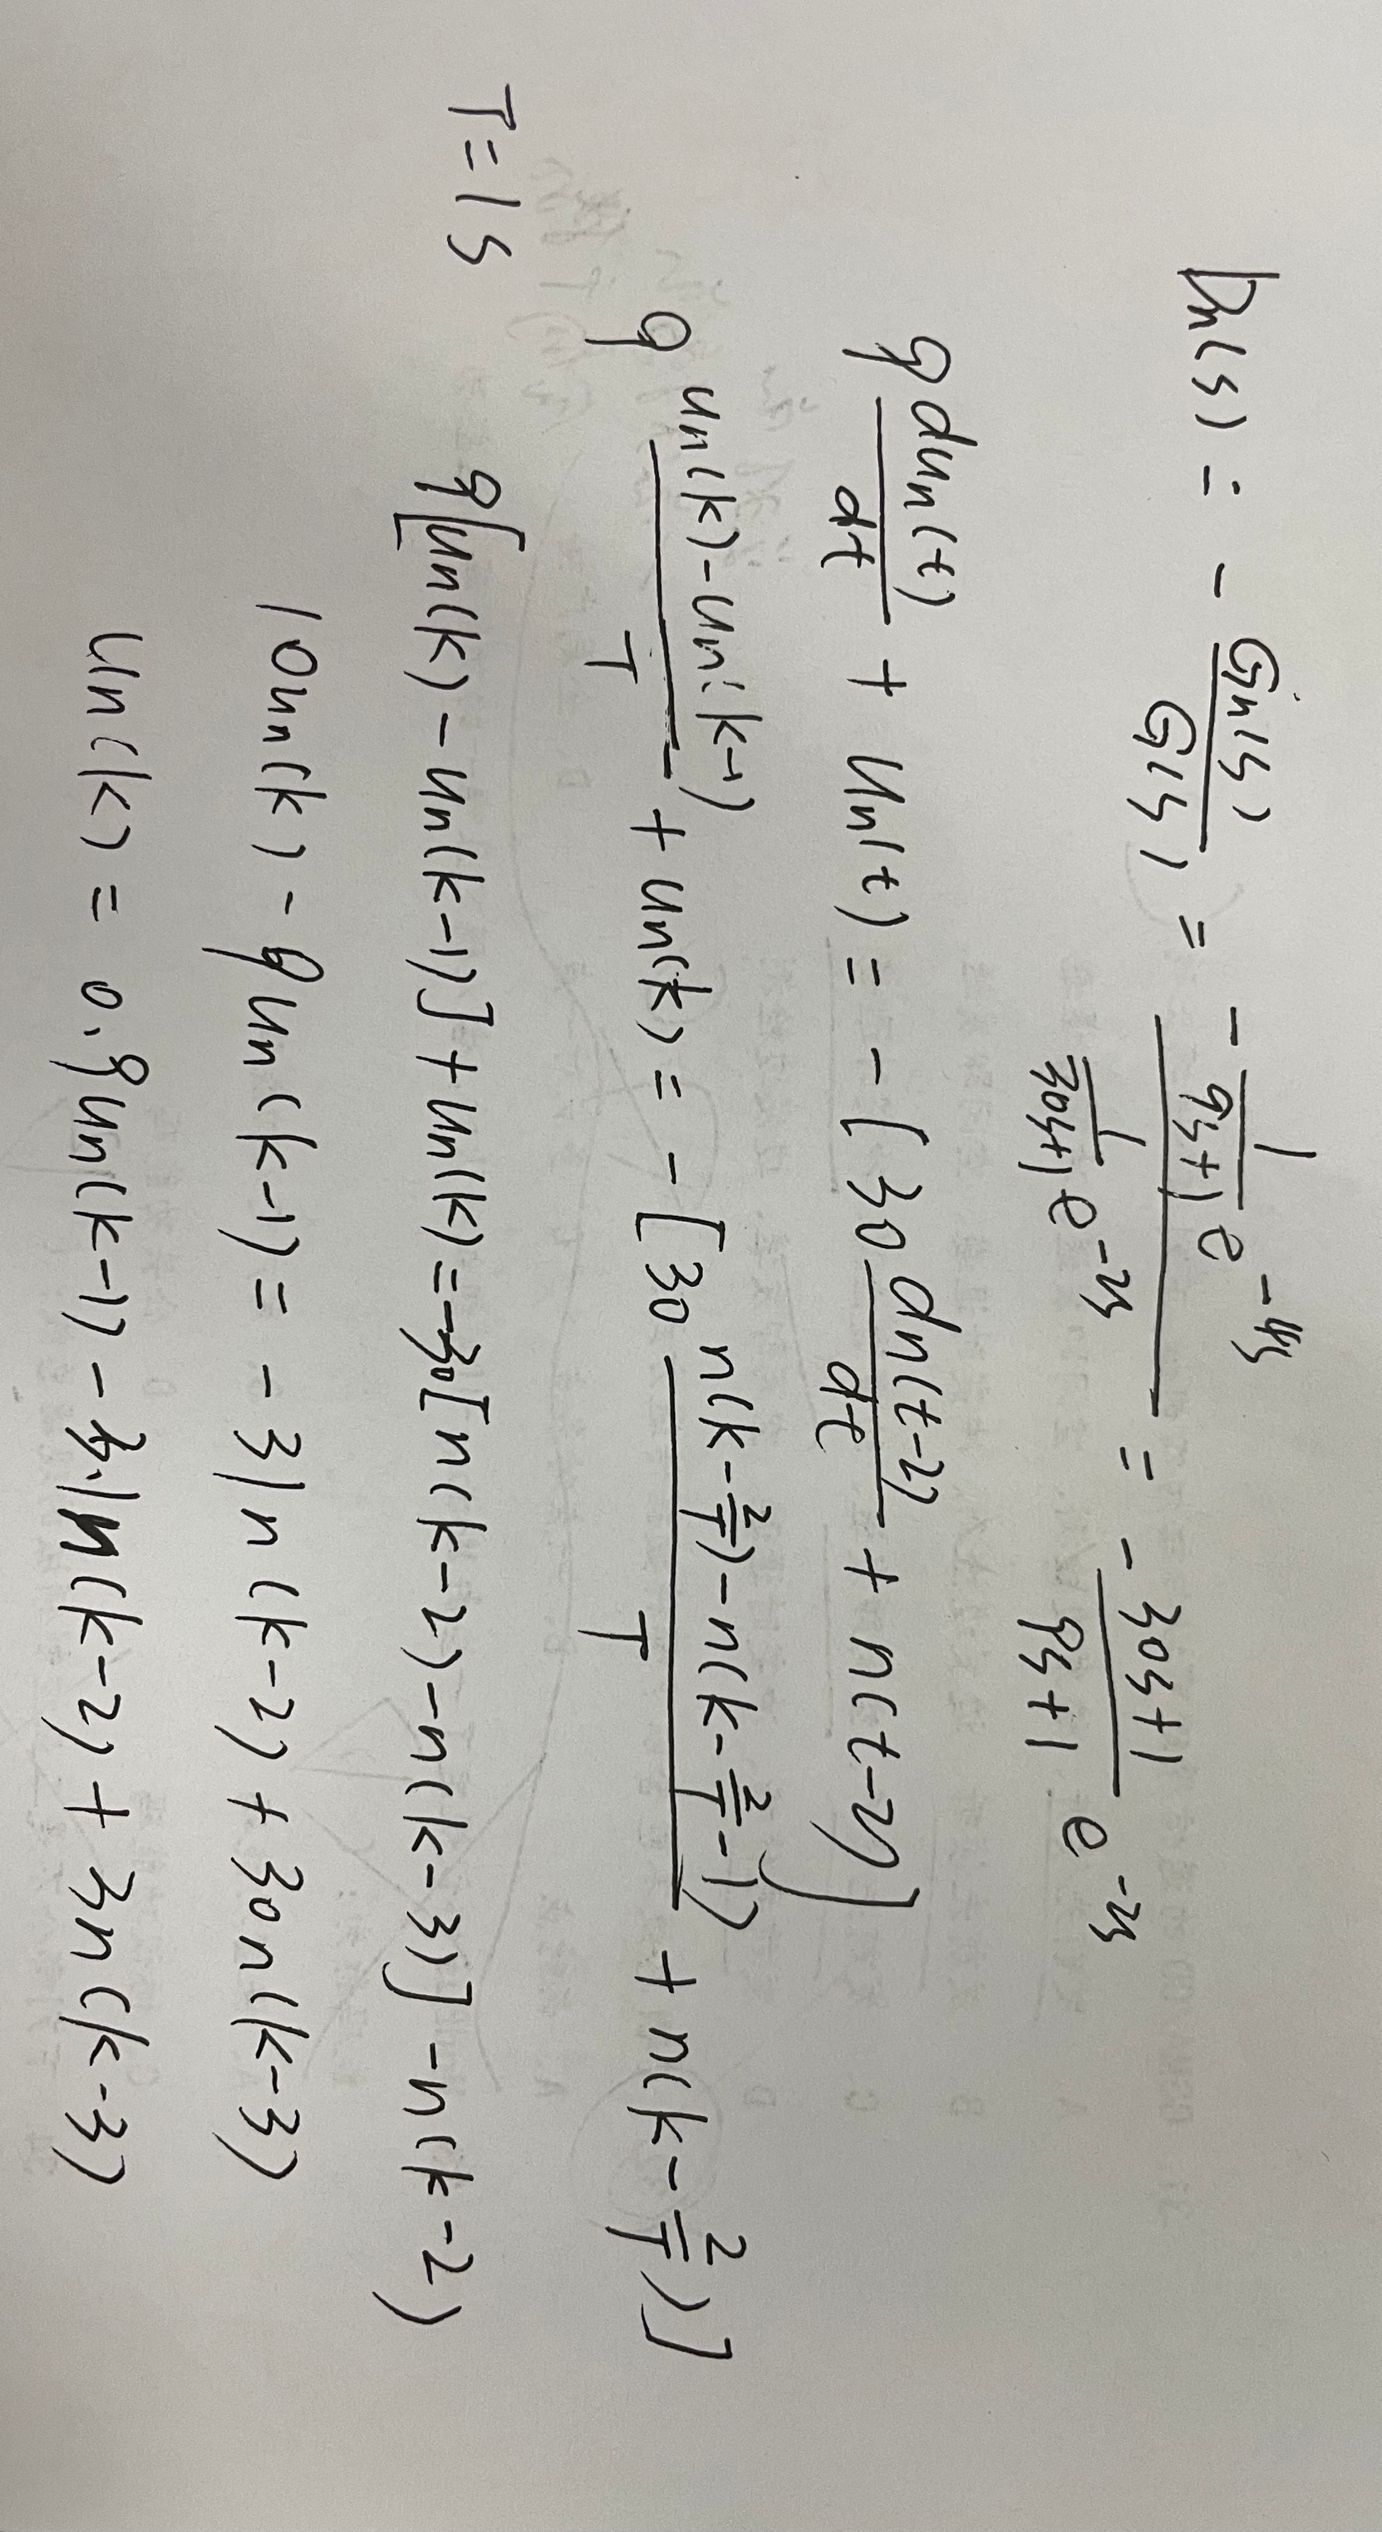 Dn(s) = - Gn(s)/G(s) = (- 1/(9s+1) e^{-4s}) / (1/(30s+1) e^{-2s}) = - (30s+1)/(9s+1) e^{-2s}
9 dun(t)/dt + un(t) = -[30 dn(t-2)/dt + n(t-2)]
9 (un(k)-un(k-1))/T + un(k) = -[30 (n(k-2/T)-n(k-2/T-1))/T + n(k-2/T)]
T=1s 9[un(k)-un(k-1)]+un(k)=-30[n(k-2)-n(k-3)]-n(k-2)
10un(k)-9un(k-1)=-31n(k-2)+30n(k-3)
un(k)=0.9un(k-1)-3.1n(k-2)+3n(k-3)